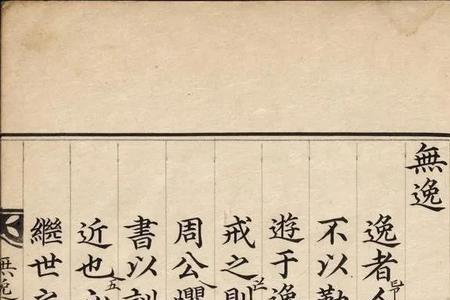 無逸
逸者人
不以勤
遊于逸
戒之則
周公懼
書以訓
近也
繼世之
無逸